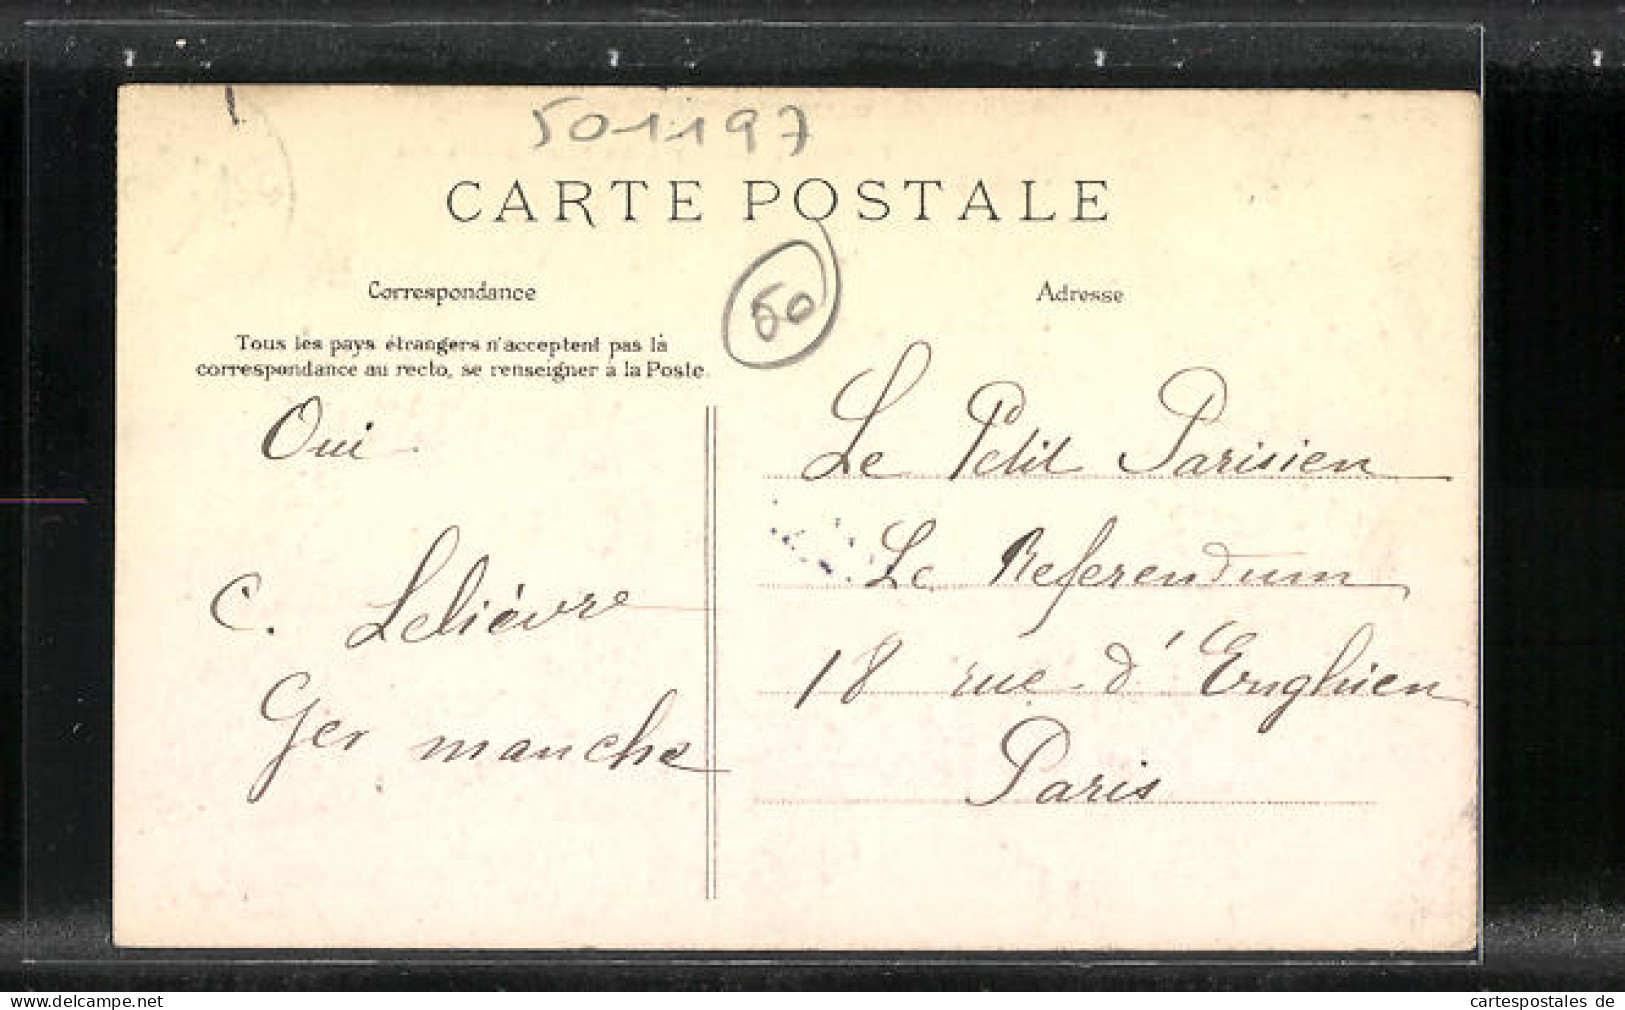 501197
CARTE POSTALE
50
Correspondance
Tous les pays étrangers n'acceptent pas la
correspondance au recto, se renseigner à la Poste.
Oui
C. Lelièvre
Ger manche
Adresse
Le Petit Parisien
Le Referendum
18 rue d'Enghien
Paris
cartespostales.de